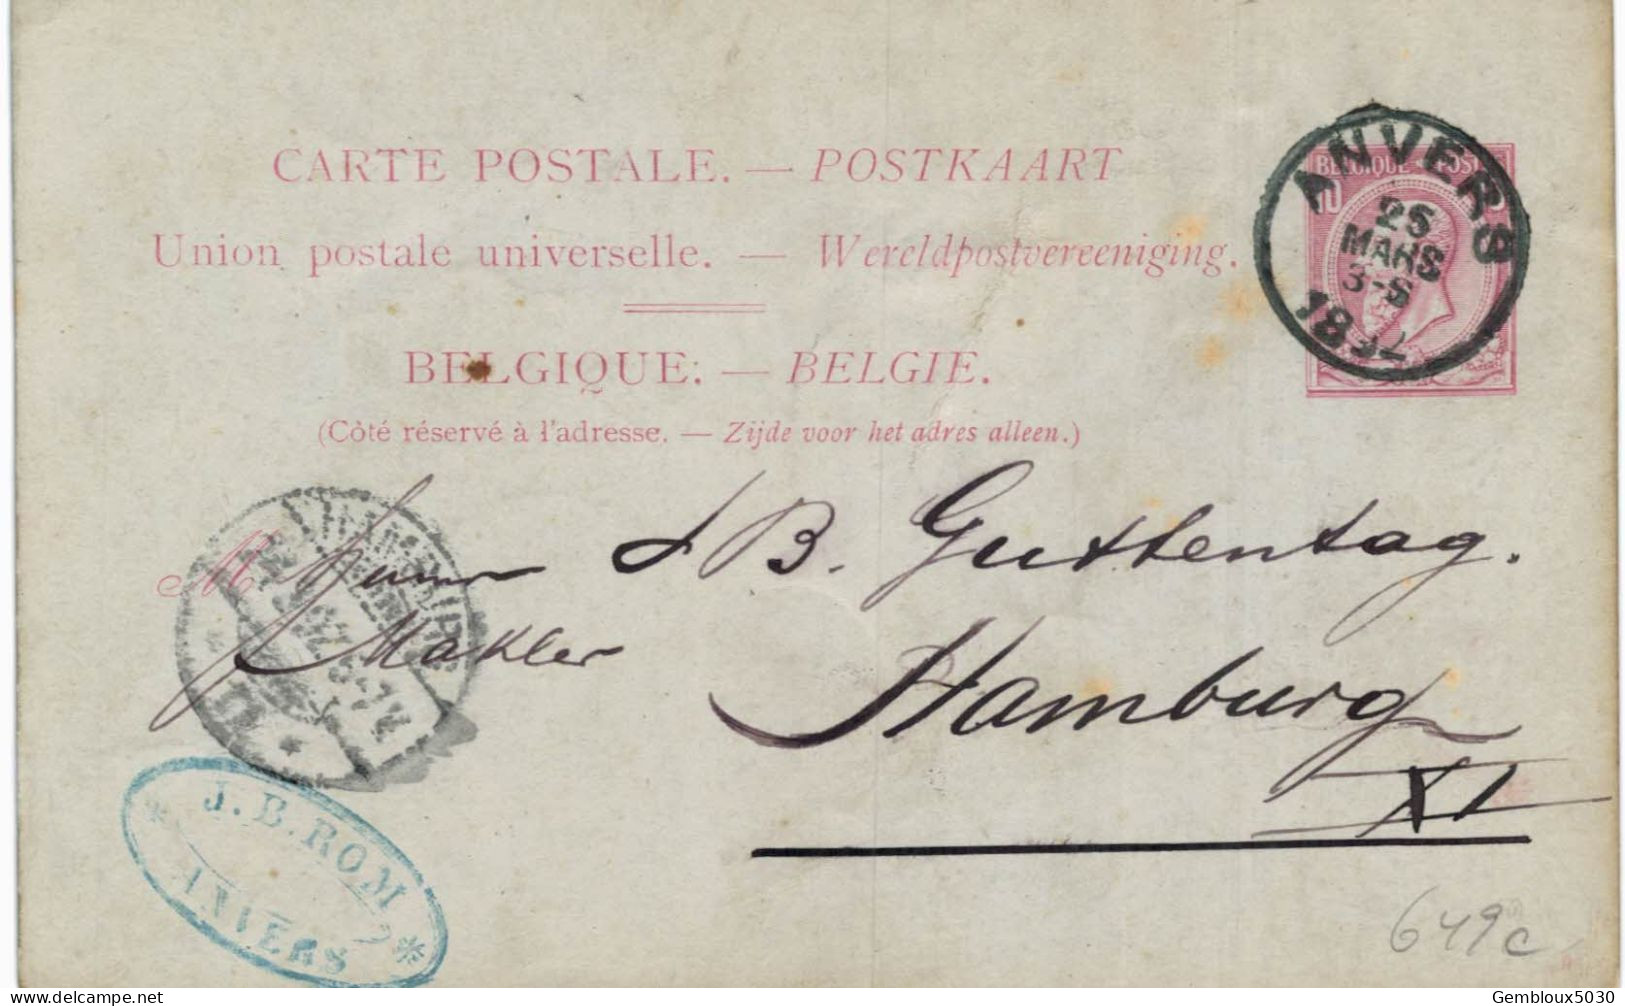 CARTE POSTALE. — POSTKAART
Union postale universelle. — Wereldpostvereeniging.
BELGIQUE. — BELGIE.
(Côté réservé à l'adresse. — Zijde voor het adres alleen.)
BELGIQUE POSTES
10
ANVERS
25
MARS
3-S
189
M
B. Guttentag.
Makler
Hamburg
XI
HAMBURG
J. B. ROM
ANVERS
649c
www.delcampe.net
Gembloux5030